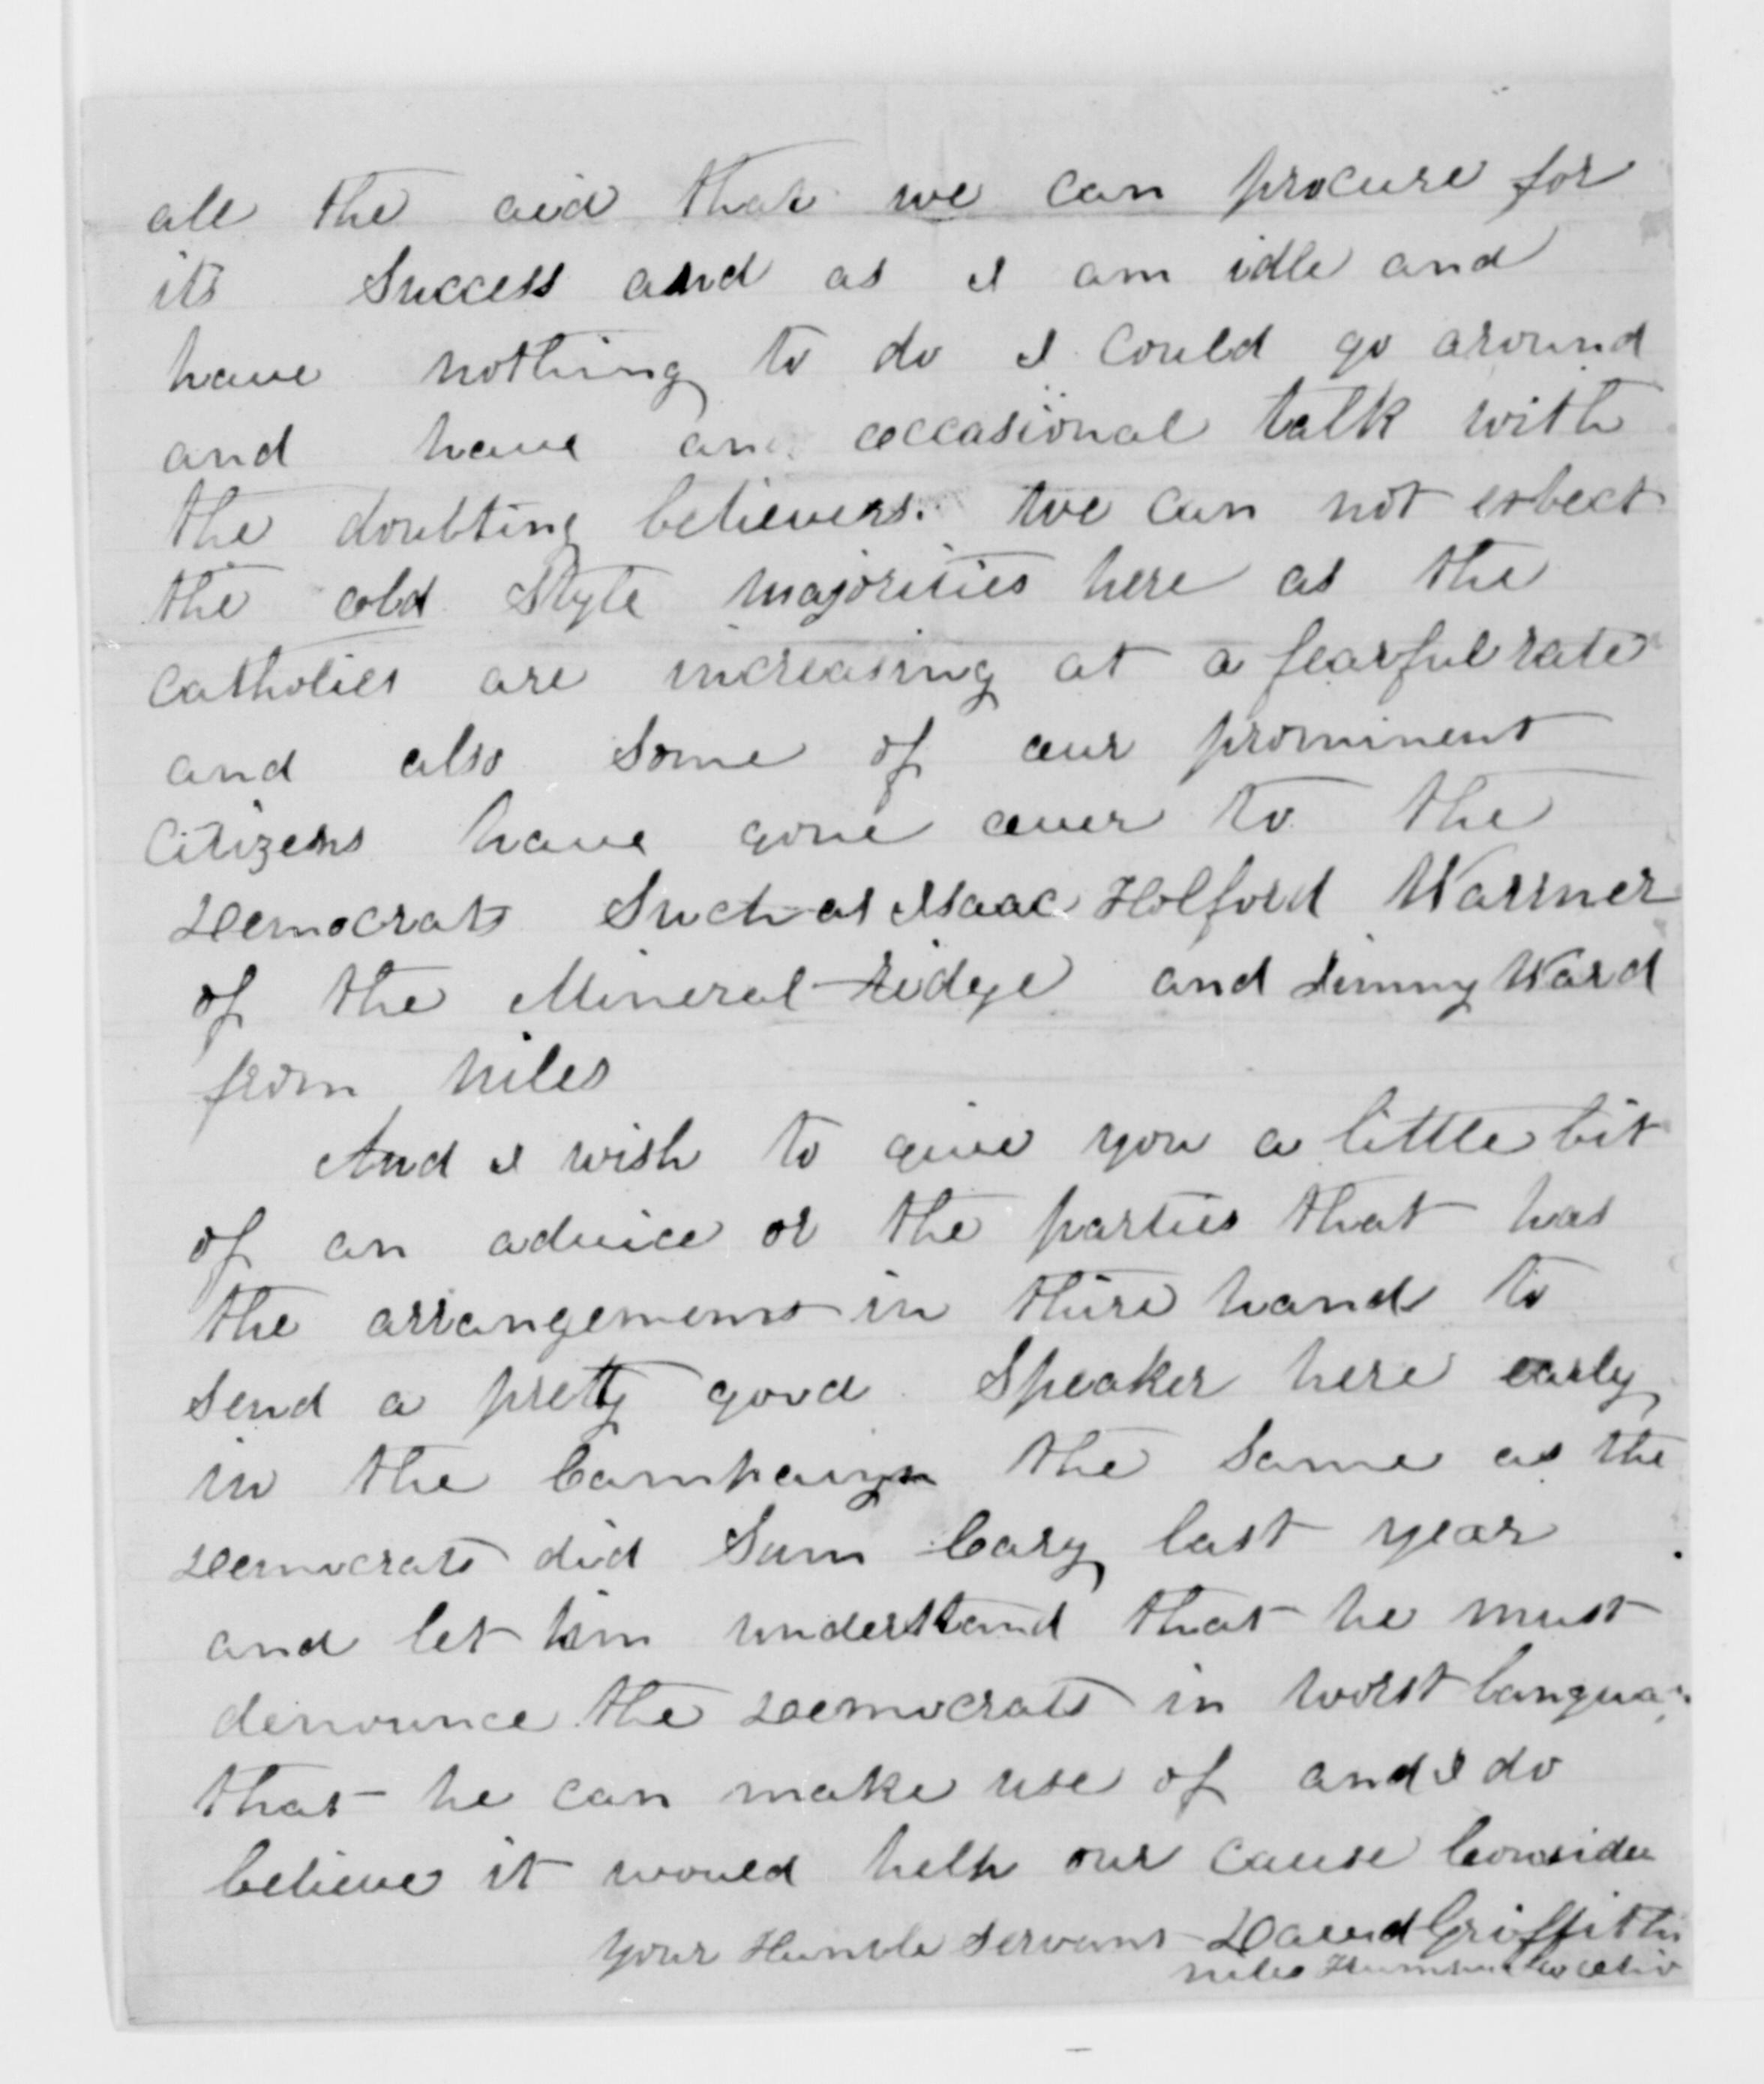 all the aid that we can procure for
its Success and as I am idle and
have nothing to do I could go around
and have an occasional talk with
the doubting believers. We can not exbect
the old Style majorities here as the
Catholics are increasing at a fearful rate
and also Some of our prominent
Citizens have gone over to the
Democrats Such as Isaac Holford Warrner
of the Mineral Ridge and Jimmy Ward
from Niles
And I wish to give you a little bit
of an advice or the parties that has
the arrangements in thire hands to
Send a pretty good Speaker here early
in the Campaign the Same as the
Democrats did Sam Cary last year
and let him understand that he must
denounce the Democrats in worst
that he can make use of and I do
believe it would help our Cause
your Humble Servant David Griffiths
Niles Co Ohio